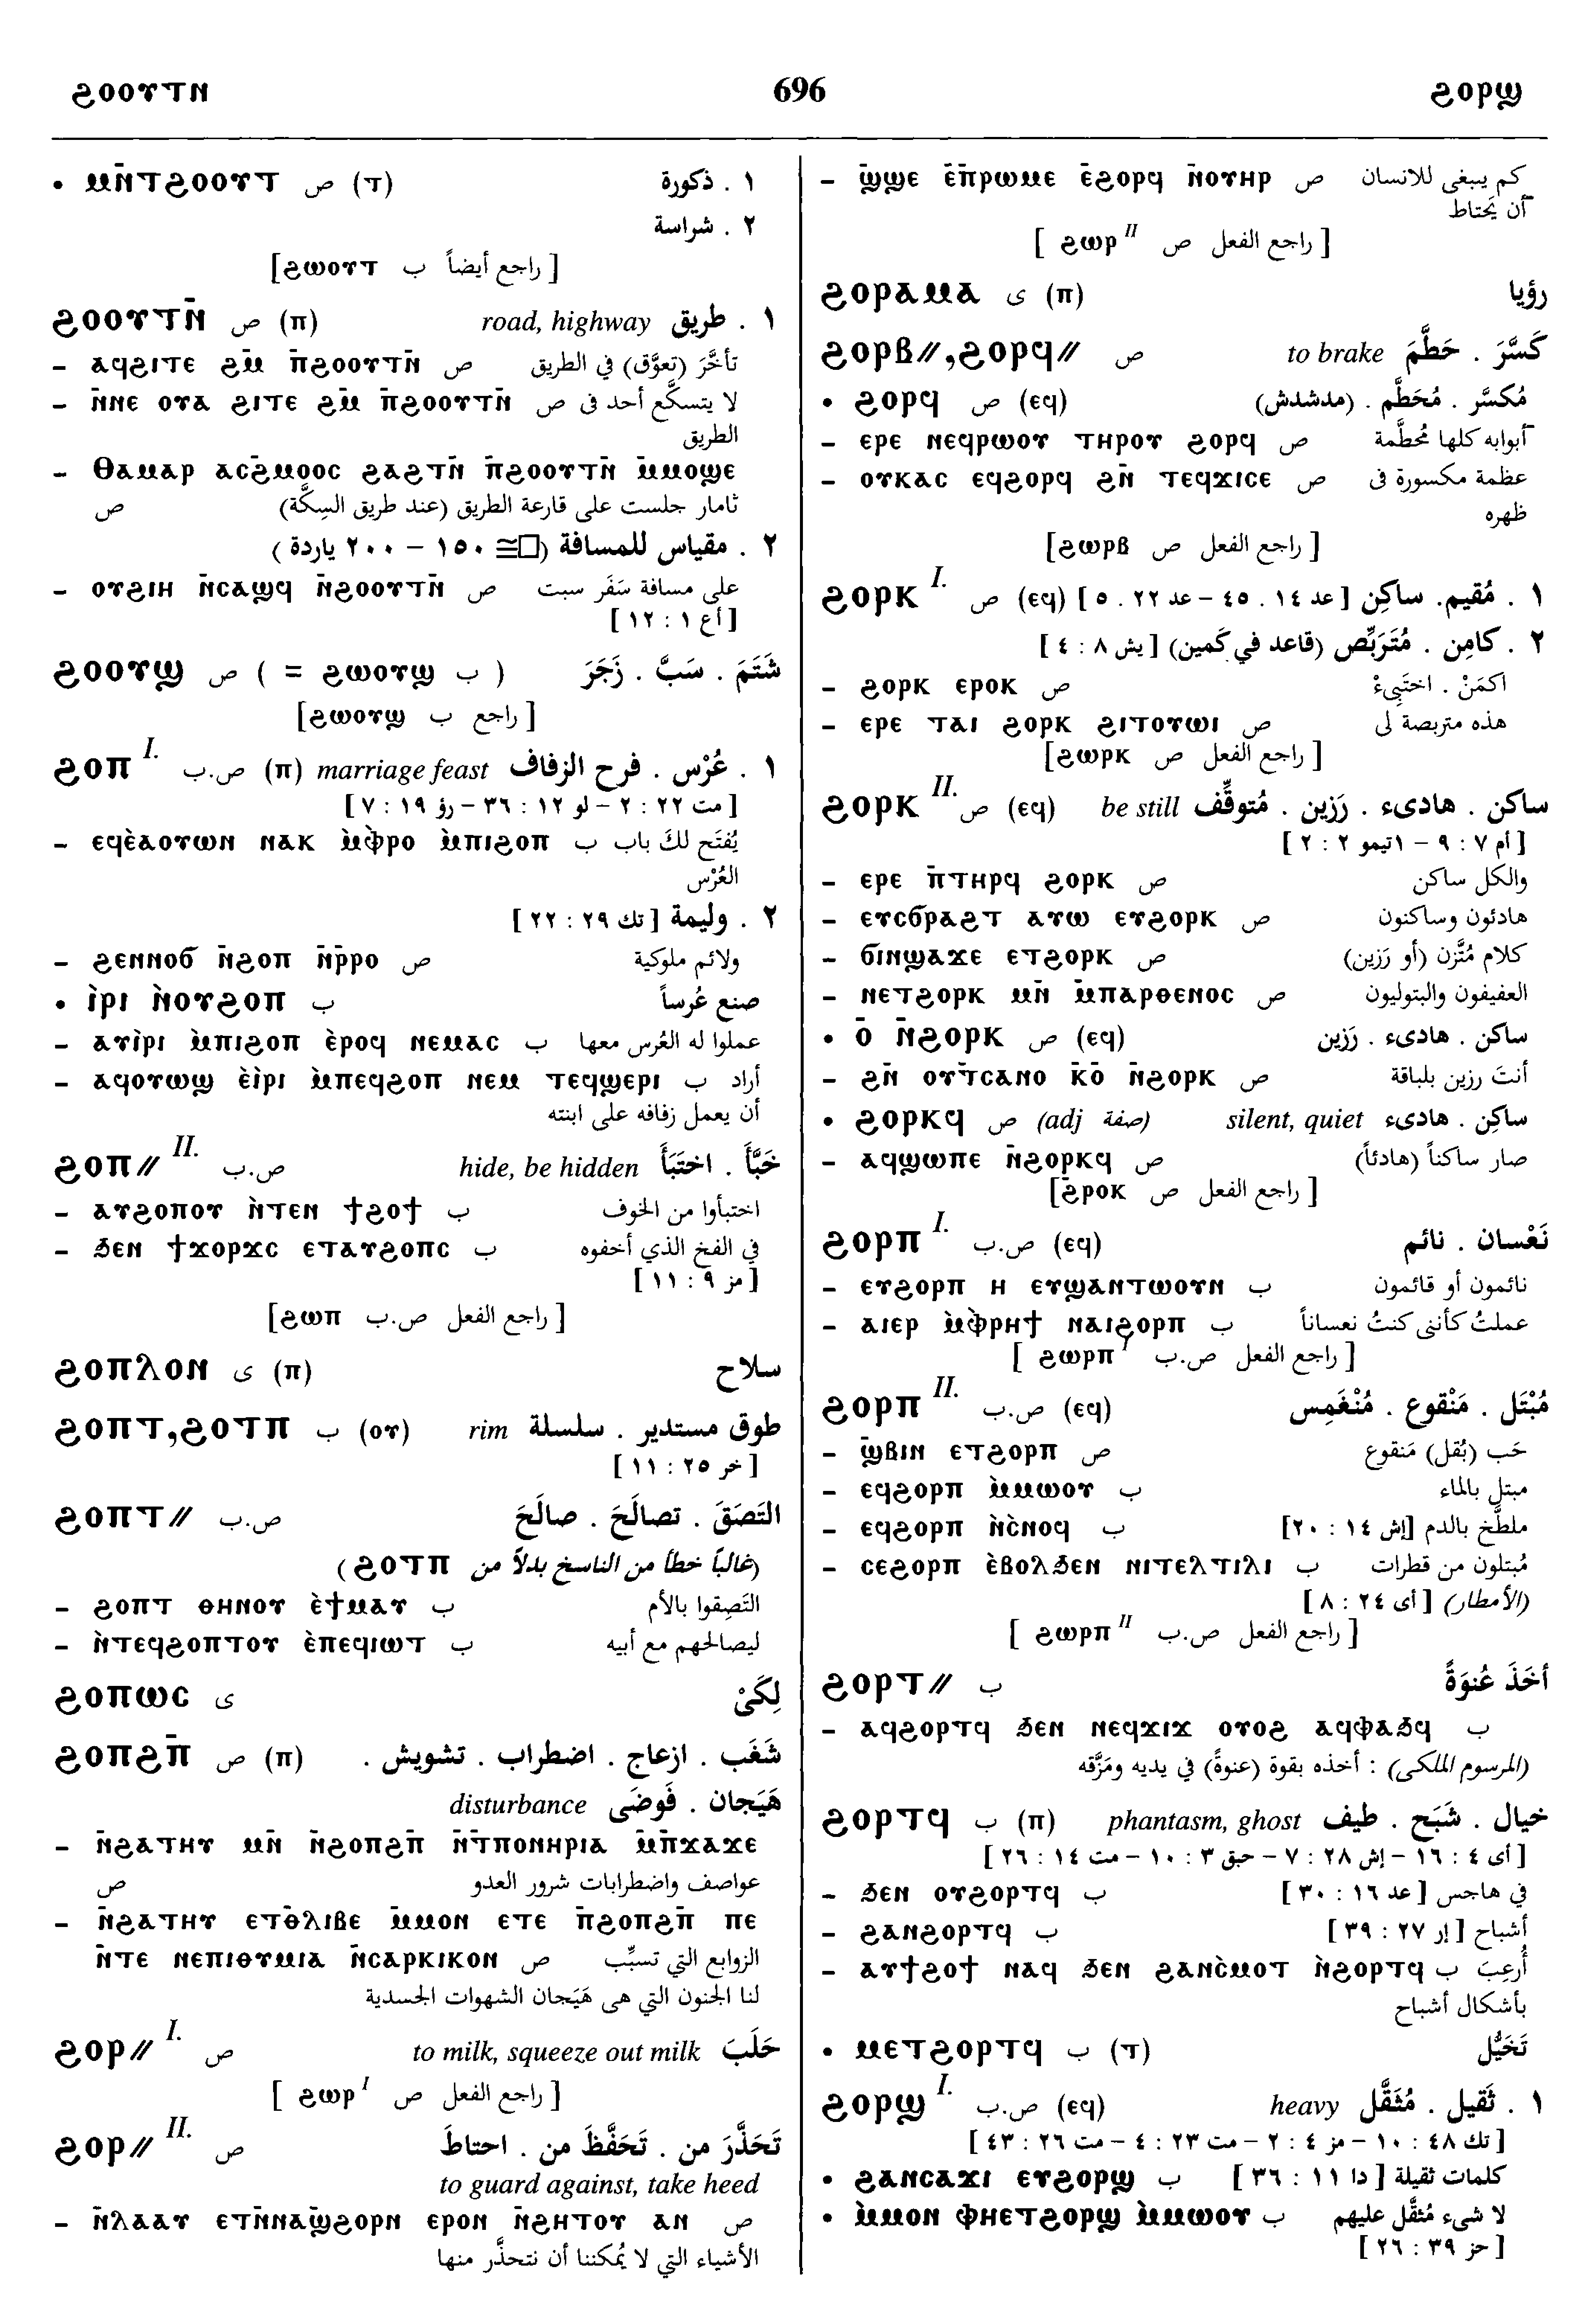 ϩⲟⲟⲩⲧⲛ 696 ϩⲟⲣϣ
• ⲙⲛ̄ⲧϩⲟⲟⲩⲧ ص (ⲧ) ١ . ذكورة
٢ . شراسة
[ راجع أيضاً ب ϩⲱⲟⲩⲧ]
ϩⲟⲟⲩⲧⲛ̄ ص (ⲡ) road, highway ١ . طريق
– ⲁϥϩⲓⲧⲉ ϩⲙ̄ ⲡ̄ϩⲟⲟⲩⲧⲛ̄ ص تأخَّرَ (تعوَّق) في الطريق
– ⲛ̄ⲛⲉ ⲟⲩⲁ ϩⲓⲧⲉ ϩⲙ̄ ⲡ̄ϩⲟⲟⲩⲧⲛ̄ ص لا يتسكَّع أحد فى
الطريق
– Ⲑⲁⲙⲁⲣ ⲁⲥϩ̄ⲙⲟⲟⲥ ϩⲁϩⲧⲛ̄ ⲡ̄ϩⲟⲟⲩⲧⲛ̄ ⲙ̄ⲙⲟϣⲉ
ص ثامار جلست على قارعة الطريق (عند طريق السِكَّة)
٢ . مقياس للمسافة (□≅ ١٥٠ – ٢٠٠ ياردة )
– ⲟⲩϩⲓⲏ ⲛ̄ⲥⲁϣϥ ⲛ̄ϩⲟⲟⲩⲧⲛ̄ ص على مسافة سَفَر سبت
[ أع ١ : ١٢ ]
ϩⲟⲟⲩϣ ص ( = ϩⲱⲟⲩϣ ب ) شَتَمَ . سَبَّ . زَجَرَ
[ راجع ب ϩⲱⲟⲩϣ]
ϩⲟⲡ I. ص.ب (ⲡ) marriage feast ١ . عُرْس . فرح الزفاف
[ مت ٢٢ : ٢ – لو ١٢ : ٣٦ – رؤ ١٩ : ٧ ]
– ⲉϥⲉ̀ⲁⲟⲩⲱⲛ ⲛⲁⲕ ⲙ̀ⲫⲣⲟ ⲙ̀ⲡⲓϩⲟⲡ ب يُفتَح لكَ باب
العُرْس
٢ . وليمة [ تك ٢٩ : ٢٢ ]
– ϩⲉⲛⲛⲟϭ ⲛ̄ϩⲟⲡ ⲛ̄ⲣ̄ⲣⲟ ص ولائم ملوكية
• ⲓ̀ⲣⲓ ⲛ̀ⲟⲩϩⲟⲡ ب صنع عُرساً
– ⲁⲩⲓ̀ⲣⲓ ⲙ̀ⲡⲓϩⲟⲡ ⲉ̀ⲣⲟϥ ⲛⲉⲙⲁⲥ ب عملوا له العُرس معها
– ⲁϥⲟⲩⲱϣ ⲉ̀ⲓ̀ⲣⲓ ⲙ̀ⲡⲉϥϩⲟⲡ ⲛⲉⲙ ⲧⲉϥϣⲉⲣⲓ ب أراد
أن يعمل زفافه على ابنته
ϩⲟⲡ// II. ص.ب hide, be hidden خَبَّأَ . اختَبَأَ
– ⲁⲩϩⲟⲡⲟⲩ ⲛ̀ⲧⲉⲛ ϯϩⲟϯ ب اختبأوا من الخوف
– ϧⲉⲛ ϯⲭⲟⲣϫⲥ ⲉⲧⲁⲩϩⲟⲡⲥ ب في الفخ الذي أخفوه
[ مز ٩ : ١١ ]
[ راجع الفعل ص.ب ϩⲱⲡ]
ϩⲟⲡⲗⲟⲛ ى (ⲡ) سلاح
ϩⲟⲡⲧ,ϩⲟⲧⲡ ب (ⲟⲩ) rim طوق مستدير . سلسلة
[ خر ٢٥ : ١١ ]
ϩⲟⲡⲧ// ص.ب التَصَقَ . تصالَحَ . صالَحَ
(غالباً خطأ من الناسخ بدلاً من ϩⲟⲧⲡ )
– ϩⲟⲡⲧ ⲑⲏⲛⲟⲩ ⲉ̀ϯⲙⲁⲩ ب التَصِقوا بالأم
– ⲛ̀ⲧⲉϥϩⲟⲡⲧⲟⲩ ⲉ̀ⲡⲉϥⲓⲱⲧ ب ليصالحهم مع أبيه
ϩⲟⲡⲱⲥ ى لِكَىْ
ϩⲟⲡϩⲡ̄ ص (ⲡ) شَغَب . ازعاج . اضطراب . تشويش .
disturbance هَيَجان . فَوضَى
– ⲛ̄ϩⲁⲧⲏⲩ ⲙⲛ̄ ⲛ̄ϩⲟⲡϩⲡ̄ ⲛ̄ⲧ̄ⲡⲟⲛⲏⲣⲓⲁ ⲙ̄ⲡ̄ϫⲁϫⲉ
ص عواصف واضطرابات شرور العدو
– ⲛ̄ϩⲁⲧⲏⲩ ⲉⲧⲑ̄ⲗⲓⲃⲉ ⲙ̄ⲙⲟⲛ ⲉⲧⲉ ⲡ̄ϩⲟⲡϩⲡ̄ ⲡⲉ
ⲛ̄ⲧⲉ ⲛⲉⲡⲓⲑⲩⲙⲓⲁ ⲛ̄ⲥⲁⲣⲕⲓⲕⲟⲛ ص الزوابع التي تسبِّب
لنا الجنون التي هى هَيَجان الشهوات الجسدية
ϩⲟⲣ// I. ص to milk, squeeze out milk حَلَبَ
[ راجع الفعل ص ϩⲱⲣ I ]
ϩⲟⲣ// II. ص تَحَذَّرَ من . تَحَفَّظَ من . احتاطَ
to guard against, take heed
– ⲛ̄ⲗⲁⲁⲩ ⲉⲧⲛ̄ⲛⲁϣ̄ϩⲟⲣⲛ ⲉⲣⲟⲛ ⲛ̄ϩⲏⲧⲟⲩ ⲁⲛ ص
الأشياء التي لا يُمكننا أن نتحذَّر منها
– ϣ̄ϣⲉ ⲉ̄ⲡ̄ⲣⲱⲙⲉ ⲉ̄ϩⲟⲣϥ ⲛ̄ⲟⲩⲏⲣ ص كم يبغى للانسان
أن يَحتاط
[ راجع الفعل ص ϩⲱⲣ II ]
ϩⲟⲣⲁⲙⲁ ى (ⲡ) رؤيا
ϩⲟⲣⲃ//,ϩⲟⲣϥ// ص to brake كَسَّرَ . حَطَّمَ
• ϩⲟⲣϥ ص (ⲉϥ) مُكسَّر . مُحَطَّم . (مدشدش)
– ⲉⲣⲉ ⲛⲉϥⲣⲱⲟⲩ ⲧⲏⲣⲟⲩ ϩⲟⲣϥ ص أبوابه كلها مُحَطَّمة
– ⲟⲩⲕⲁⲥ ⲉϥϩⲟⲣϥ ϩⲛ̄ ⲧⲉϥϫⲓⲥⲉ ص عظمة مكسورة فى
ظهره
[ راجع الفعل ص ϩⲱⲣⲃ]
ϩⲟⲣⲕ I. ص (ⲉϥ) ١ . مُقيم. ساكِن [ عد ١٤ . ٤٥ – عد ٢٢ . ٥ ]
٢ . كامِن . مُتَرَبِّص (قاعد في كَمين) [ يش ٨ : ٤ ]
– ϩⲟⲣⲕ ⲉⲣⲟⲕ ص اكمَنْ . اختَبِىءْ
– ⲉⲣⲉ ⲧⲁⲓ ϩⲟⲣⲕ ϩⲓⲧⲟⲩⲱⲓ ص هذه متربصة لى
[ راجع الفعل ص ϩⲱⲣⲕ]
ϩⲟⲣⲕ II. ص (ⲉϥ) be still ساكن . هادىء . رَزين . مُتوقِّف
[ أم ٧ : ٩ – ١تيمو ٢ : ٢ ]
– ⲉⲣⲉ ⲡ̄ⲧⲏⲣϥ ϩⲟⲣⲕ ص والكل ساكن
– ⲉⲩⲥϭⲣⲁϩⲧ ⲁⲩⲱ ⲉⲩϩⲟⲣⲕ ص هادئون وساكنون
– ϭⲓⲛϣⲁϫⲉ ⲉⲧϩⲟⲣⲕ ص كلام مُتَّزن (أو رَزين)
– ⲛⲉⲧϩⲟⲣⲕ ⲙⲛ̄ ⲙ̄ⲡⲁⲣⲑⲉⲛⲟⲥ ص العفيفون والبتوليون
• ⲟ̄ ⲛ̄ϩⲟⲣⲕ ص (ⲉϥ) ساكن . هادىء . رَزين
– ϩⲛ̄ ⲟⲩⲧ̄ⲥⲁⲛⲟ ⲕ̄ⲟ̄ ⲛ̄ϩⲟⲣⲕ ص أنتَ رزين بلباقة
• ϩⲟⲣⲕϥ ص (adj صفة) silent, quiet ساكِن . هادىء
– ⲁϥϣⲱⲡⲉ ⲛ̄ϩⲟⲣⲕϥ ص صار ساكناً (هادئاً)
[ راجع الفعل ص ϩ̄ⲣⲟⲕ]
ϩⲟⲣⲡ I. ص.ب (ⲉϥ) نَعْسان . نائم
– ⲉⲩϩⲟⲣⲡ ⲏ ⲉⲩϣⲁⲛⲧⲱⲟⲩⲛ ب نائمون أو قائمون
– ⲁⲓⲉⲣ ⲙ̀ⲫⲣⲏϯ ⲛⲁⲓϩⲟⲣⲡ ب عملتُ كأننى كنتُ نعساناً
[ راجع الفعل ص.ب ϩⲱⲣⲡ I ]
ϩⲟⲣⲡ II. ص.ب (ⲉϥ) مُبْتَل . مَنْقوع . مُنْغَمِس
– ϣ̄ⲃⲓⲛ ⲉⲧϩⲟⲣⲡ ص حَب (بُقل) مَنقوع
– ⲉϥϩⲟⲣⲡ ⲙ̀ⲙⲱⲟⲩ ب مبتل بالماء
– ⲉϥϩⲟⲣⲡ ⲛ̀ⲥ̀ⲛⲟϥ ب ملطَّخ بالدم [إش ١٤ : ٢٠]
– ⲥⲉϩⲟⲣⲡ ⲉ̀ⲃⲟⲗϧⲉⲛ ⲛⲓⲧⲉⲗⲧⲓⲗⲓ ب مُبتلون من قطرات
(الأمطار) [ أى ٢٤ : ٨ ]
[ راجع الفعل ص.ب ϩⲱⲣⲡ II ]
ϩⲟⲣⲧ// ب أخَذَ عُنوَةً
– ⲁϥϩⲟⲣⲧϥ ϧⲉⲛ ⲛⲉϥϫⲓϫ ⲟⲩⲟϩ ⲁϥⲫⲁϧϥ ب
(المرسوم الملكى) : أخذه بقوة (عنوةً) في يديه ومَزَّقه
ϩⲟⲣⲧϥ ب (ⲡ) phantasm, ghost خيال . شَبَح . طيف
[ أى ٤ : ١٦ – إش ٢٨ : ٧ – حبق ٣ : ١٠ – مت ١٤ : ٢٦ ]
– ϧⲉⲛ ⲟⲩϩⲟⲣⲧϥ ب في هاجس [ عد ١٦ : ٣٠ ]
– ϩⲁⲛϩⲟⲣⲧϥ ب أشباح [ إر ٢٧ : ٣٩ ]
– ⲁⲩϯϩⲟϯ ⲛⲁϥ ϧⲉⲛ ϩⲁⲛⲥ̀ⲙⲟⲧ ⲛ̀ϩⲟⲣⲧϥ ب أُرعِبَ
بأشكال أشباح
• ⲙⲉⲧϩⲟⲣⲧϥ ب (ⲧ) تَخَيُّل
ϩⲟⲣϣ I. ص.ب (ⲉϥ) heavy ١ . ثَقيل . مُثَقَّل
[ تك ٤٨ : ١٠ – مز ٤ : ٢ – مت ٢٣ : ٤ – مت ٢٦ : ٤٣ ]
• ϩⲁⲛⲥⲁϫⲓ ⲉⲩϩⲟⲣϣ ب كلمات ثقيلة [ دا ١١ : ٣٦ ]
• ⲙ̀ⲙⲟⲛ ⲫⲏⲉⲧϩⲟⲣϣ ⲙ̀ⲙⲱⲟⲩ ب لا شىء مُثقَّل عليهم
[ حز ٣٩ : ٢٦ ]